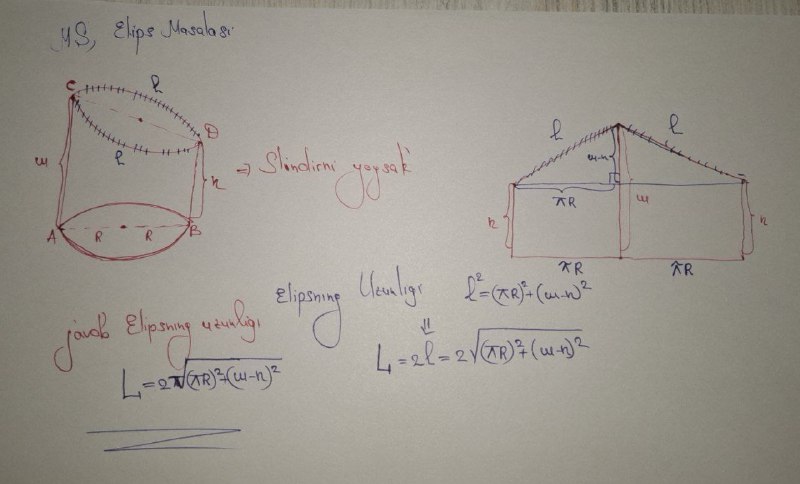 MS, Elips Masalasi
C
l
D
l
m
n
A
R
R
B
⇒ Slindirni yoysak
l
l
m-n
πR
n
m
n
πR
πR
Elipsning Uzunligi
l²=(πR)²+(m-n)²
L=2l=2√(πR)²+(m-n)²
javob Elipsning uzunligi
L=2√(πR)²+(m-n)²